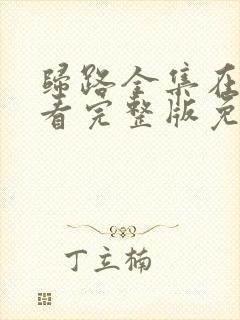 归路全集在
看完整版免
丁立楠